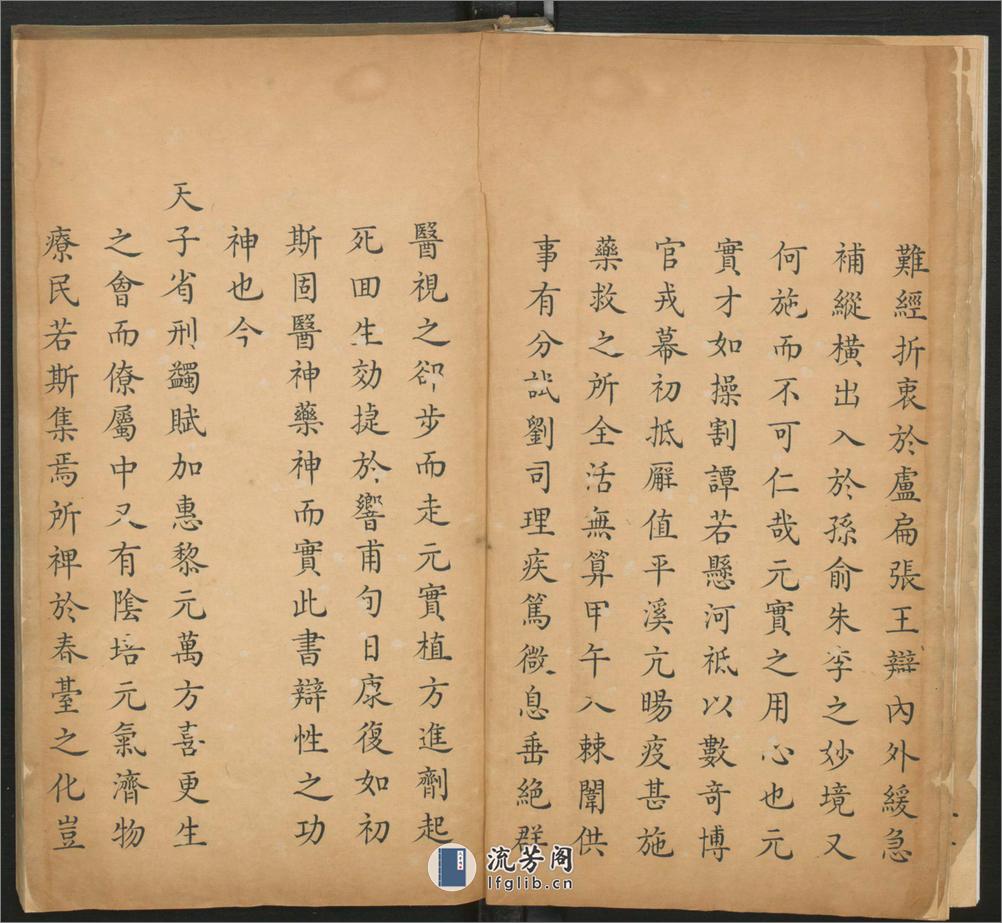 難經折衷於盧扁張王辯內外緩急
補縱橫出入於孫俞朱李之妙境又
何施而不可仁哉元實之用心也元
實才如操割譚若懸河祗以數奇博
官戎幕初抵廨值平溪亢暘疫甚施
藥救之所全活無算甲午入棘闈供
事有分試劉司理疾篤微息垂絕群
醫視之卻步而走元實植方進劑起
死回生効捷於響甫旬日康復如初
斯固醫神藥神而實此書辯性之功
神也今
天子省刑蠲賦加惠黎元萬方喜更生
之會而僚屬中又有陰培元氣濟物
療民若斯集焉所裨於春臺之化豈
流芳阁
lfglib.cn